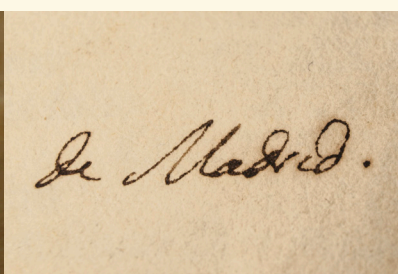 de Madrid.